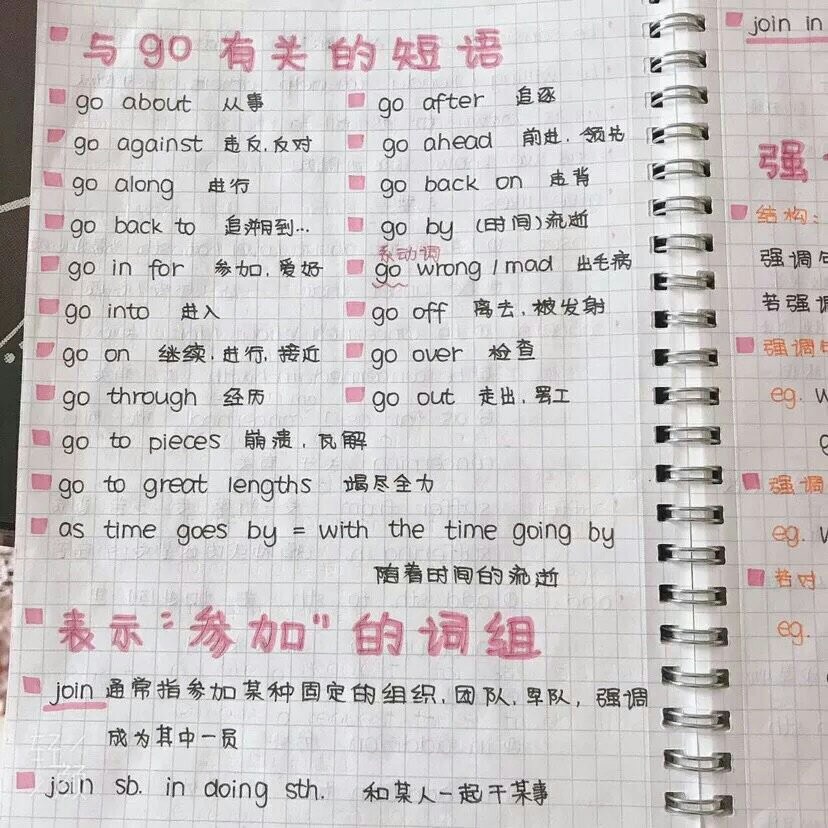 与go有关的短语
go about 从事 go after 追逐
go against 违反,反对 go ahead 前进,领先
go along 进行 go back on 违背
go back to 追溯到… go by (时间)流逝
系动词
go in for 参加,爱好 go wrong / mad 出毛病
go into 进入 go off 离去,被发射
go on 继续,进行,接近 go over 检查
go through 经历 go out 走出,罢工
go to pieces 崩溃,瓦解
go to great lengths 竭尽全力
as time goes by = with the time going by
随着时间的流逝
表示“参加”的词组
join 通常指参加某种固定的组织,团队,军队,强调
成为其中一员
join sb. in doing sth. 和某人一起干某事
join in
强
结构:
强调句
若强调
强调句
eg. w
g
强调
eg. w
若对
eg.